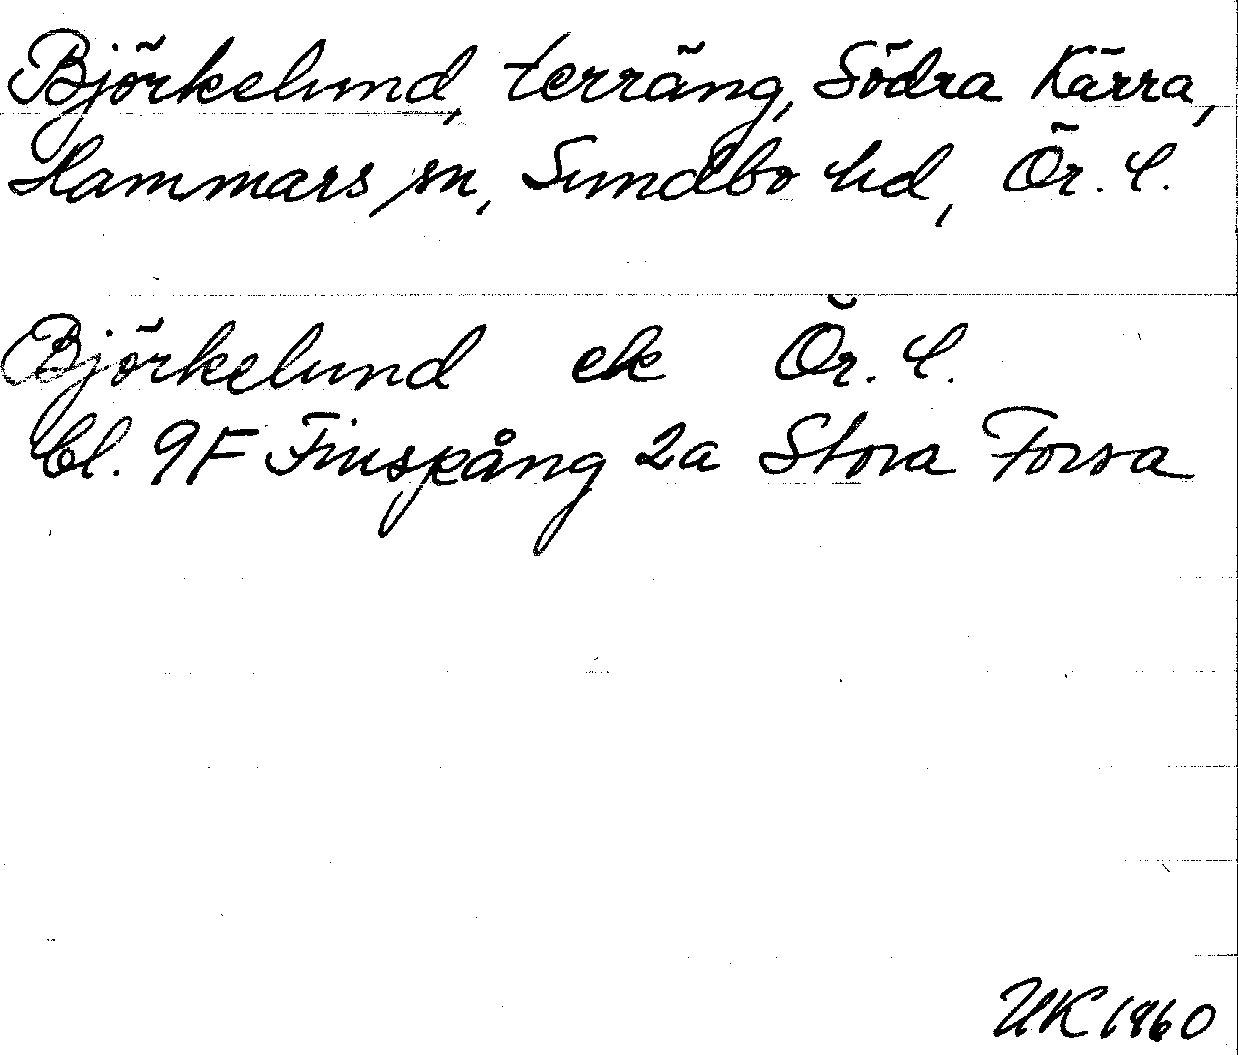 Björkelund, terräng, Södra Kärra,
Hammars sn, Sundbo hd, Ör. l.
Björkelund ek Ör. l.
Bl. 9F Finspång 2a Stora Forsa
UK 1960